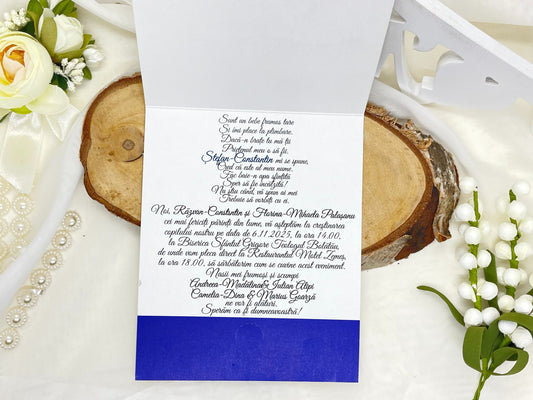 Sunt un bebe frumos tare
Și îmi place la plimbare.
Dacă-n brațe tu mă ții
Prietenul meu o să fii.
Ștefan-Constantin mi se spune,
Cred că este al meu nume.
Fac baie-n apa sfințită
Sper să fie încălzită!
Nu știu când, vă spun ai mei
Trebuie să vorbiți cu ei.
Noi, Răzvan-Constantin și Florina-Mihaela Palașanu
cei mai fericiți părinți din lume, vă așteptăm la creștinarea
copilului nostru pe data de 6.11.2025, la ora 14.00,
la Biserica Sfântul Grigore Teologul Galătiu,
de unde vom pleca direct la Restaurantul Motel Lemeș,
la ora 18.00, să sărbătorim cum se cuvine acest eveniment.
Nașii mei frumoși și scumpi
Andreea-Mădălina & Iulian Alipi
Camelia-Dina & Marius Goarză
ne vor fi alături.
Sperăm ca și dumneavoastră!